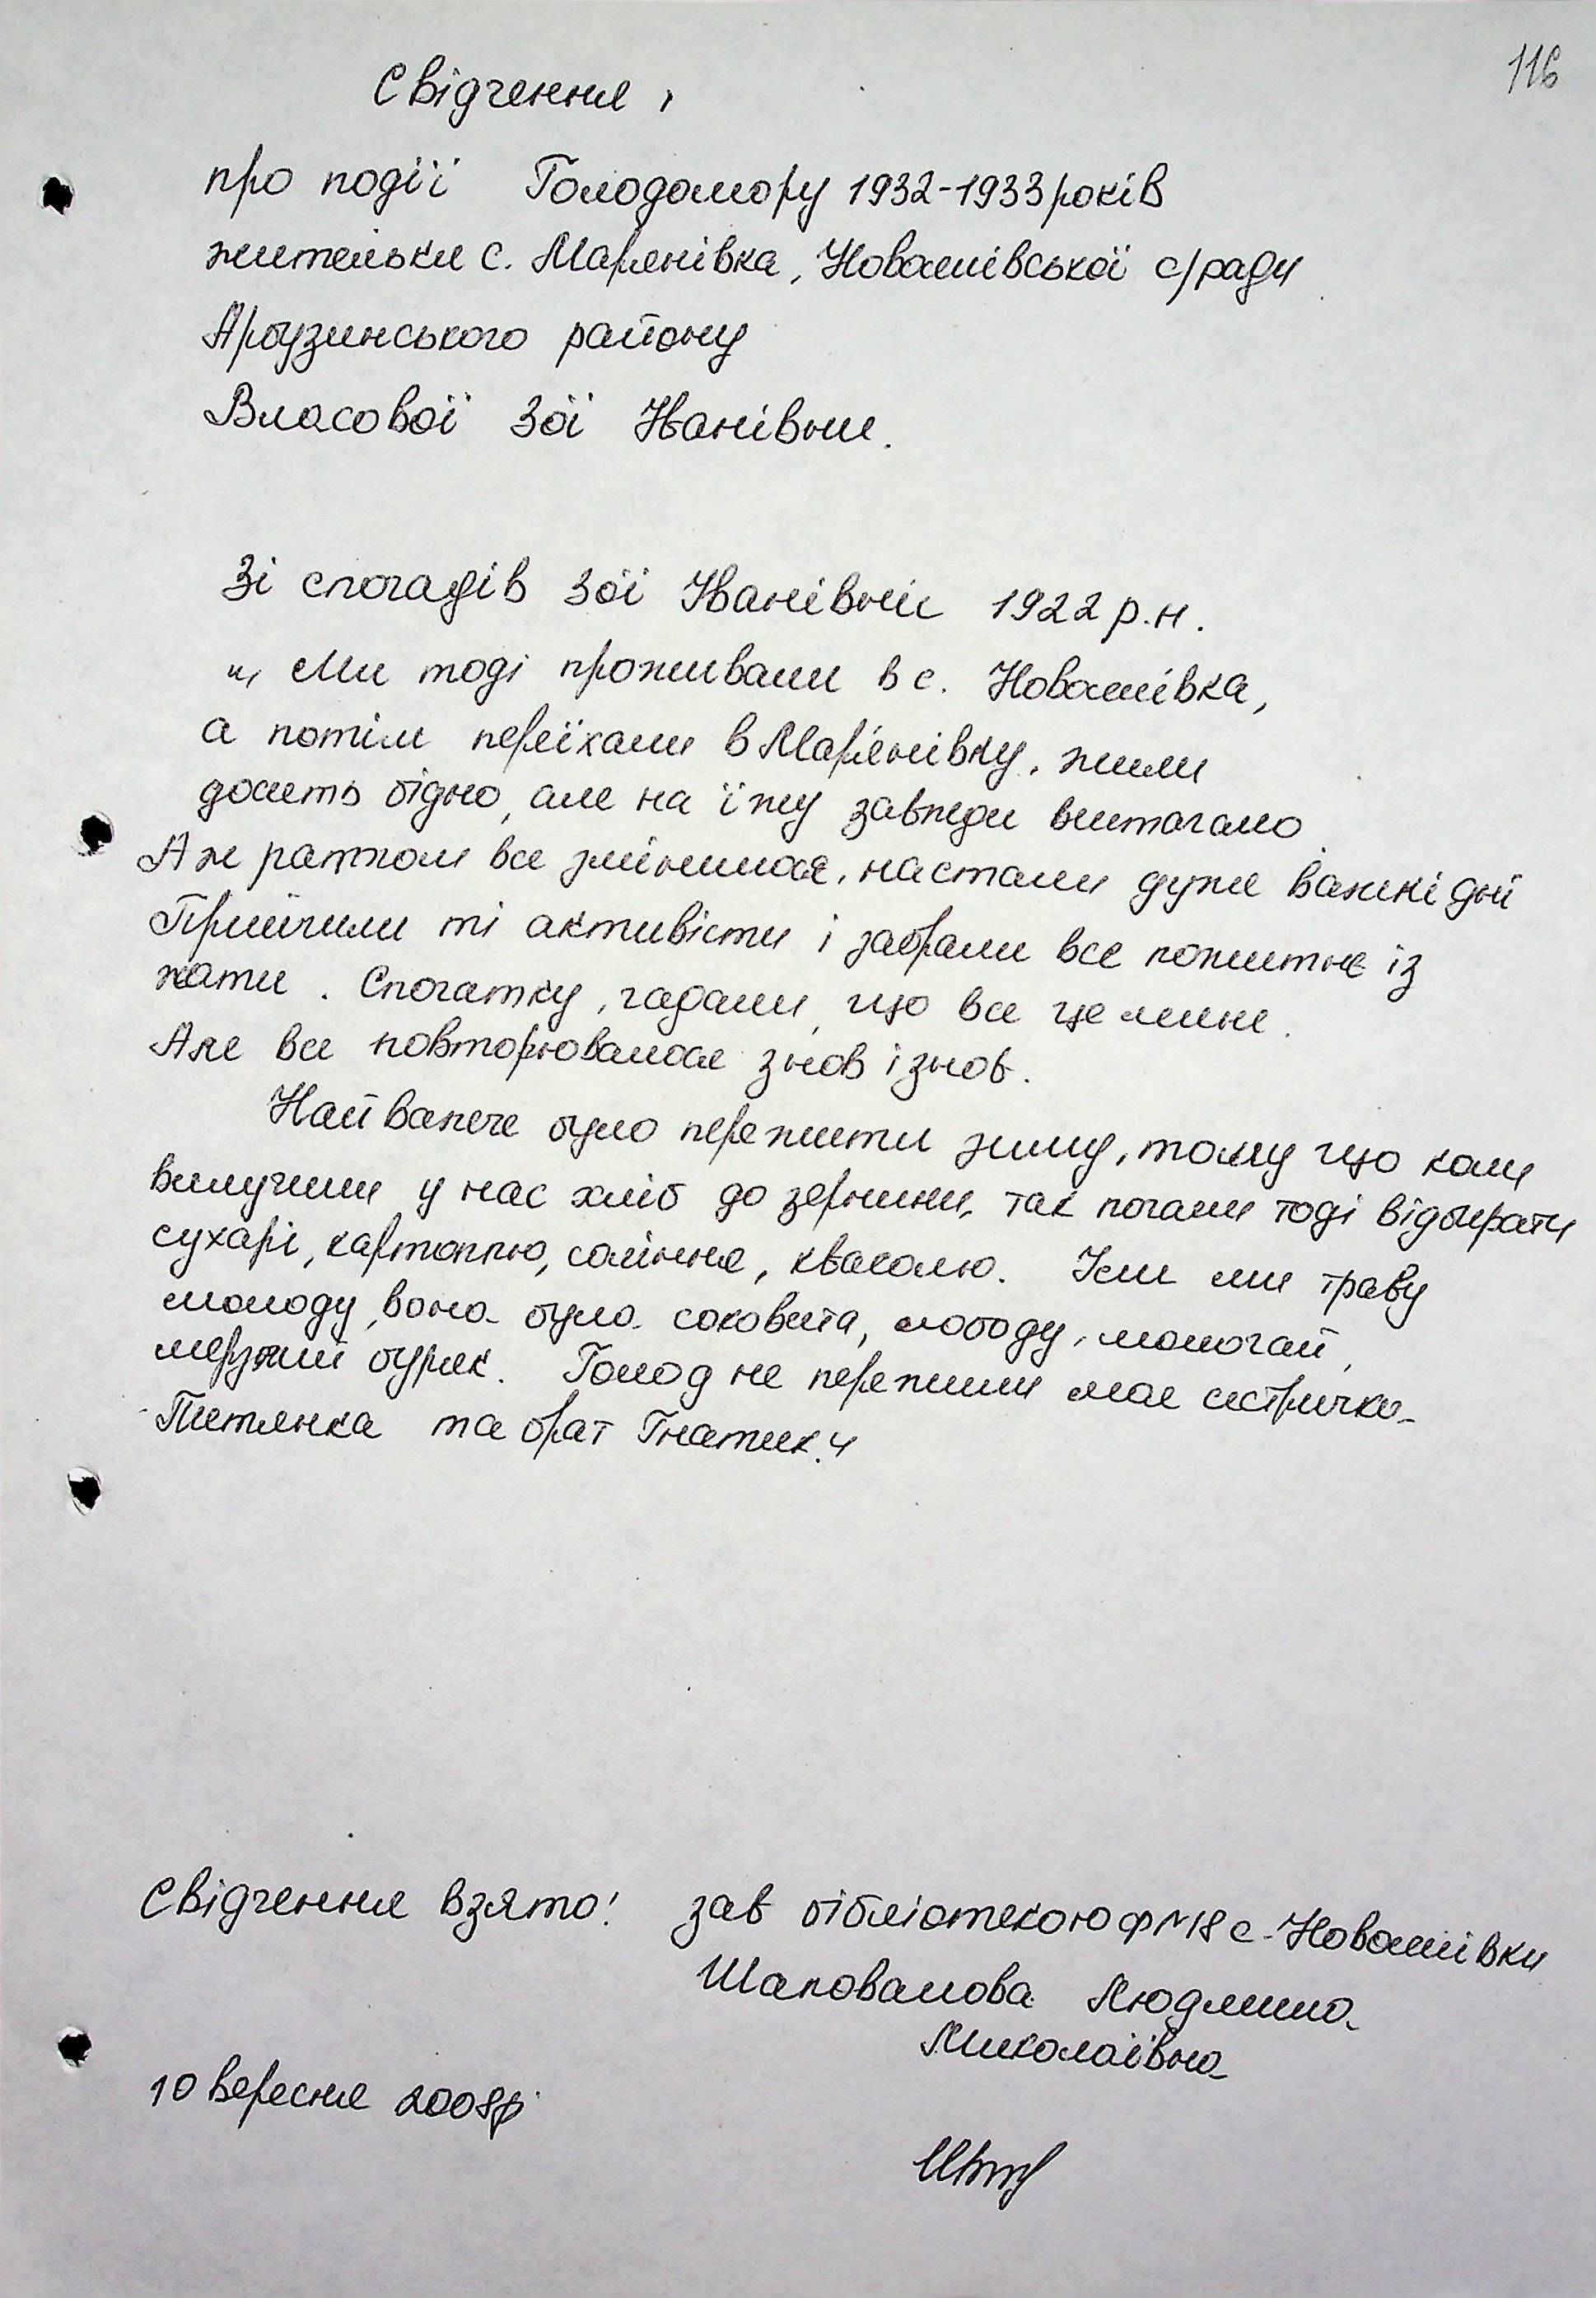 116
Свідчення
про події Голодомору 1932-1933 років
жительки с. Мар'янівка, Новоселівської с/ради
Арбузинського району
Власової Зої Іванівни.
Зі спогадів Зої Іванівни 1922 р.н.
„ Ми тоді проживали в с. Новоселівка,
а потім переїхали в Мар'янівку, жили
досить бідно, але на їжу завжди вистачало.
Аж раптом все змінилося, настали дуже важкі дні
Прийшли ті активісти і забрали все пожитнє із
хати. Спочатку, гадали, що все це мине.
Але все повторювалося знов і знов.
Найважче було пережити зиму, тому що коли
вилучили у нас хліб до зернини, так почали тоді відбирати
сухарі, картоплю, соління, квасолю. Їли ми траву
молоду, вона була соковита, лободу, молочай,
мерзлий буряк. Голод не пережили моя сестричка
Тетянка та брат Гнатик."
Свідчення взято! зав бібліотекою ф№18 с. Новоселівки
Шаповалова Людмила
Миколаївна
10 вересня 2008р.